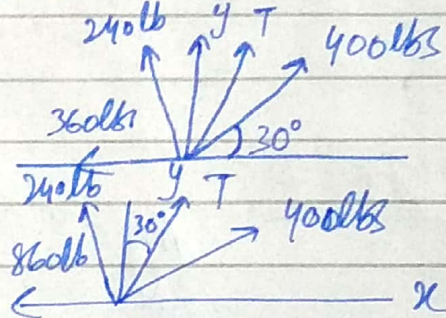 240lb y T 400lbs
360lbs 30°
240lb y T
30° 400lbs
860lb
x